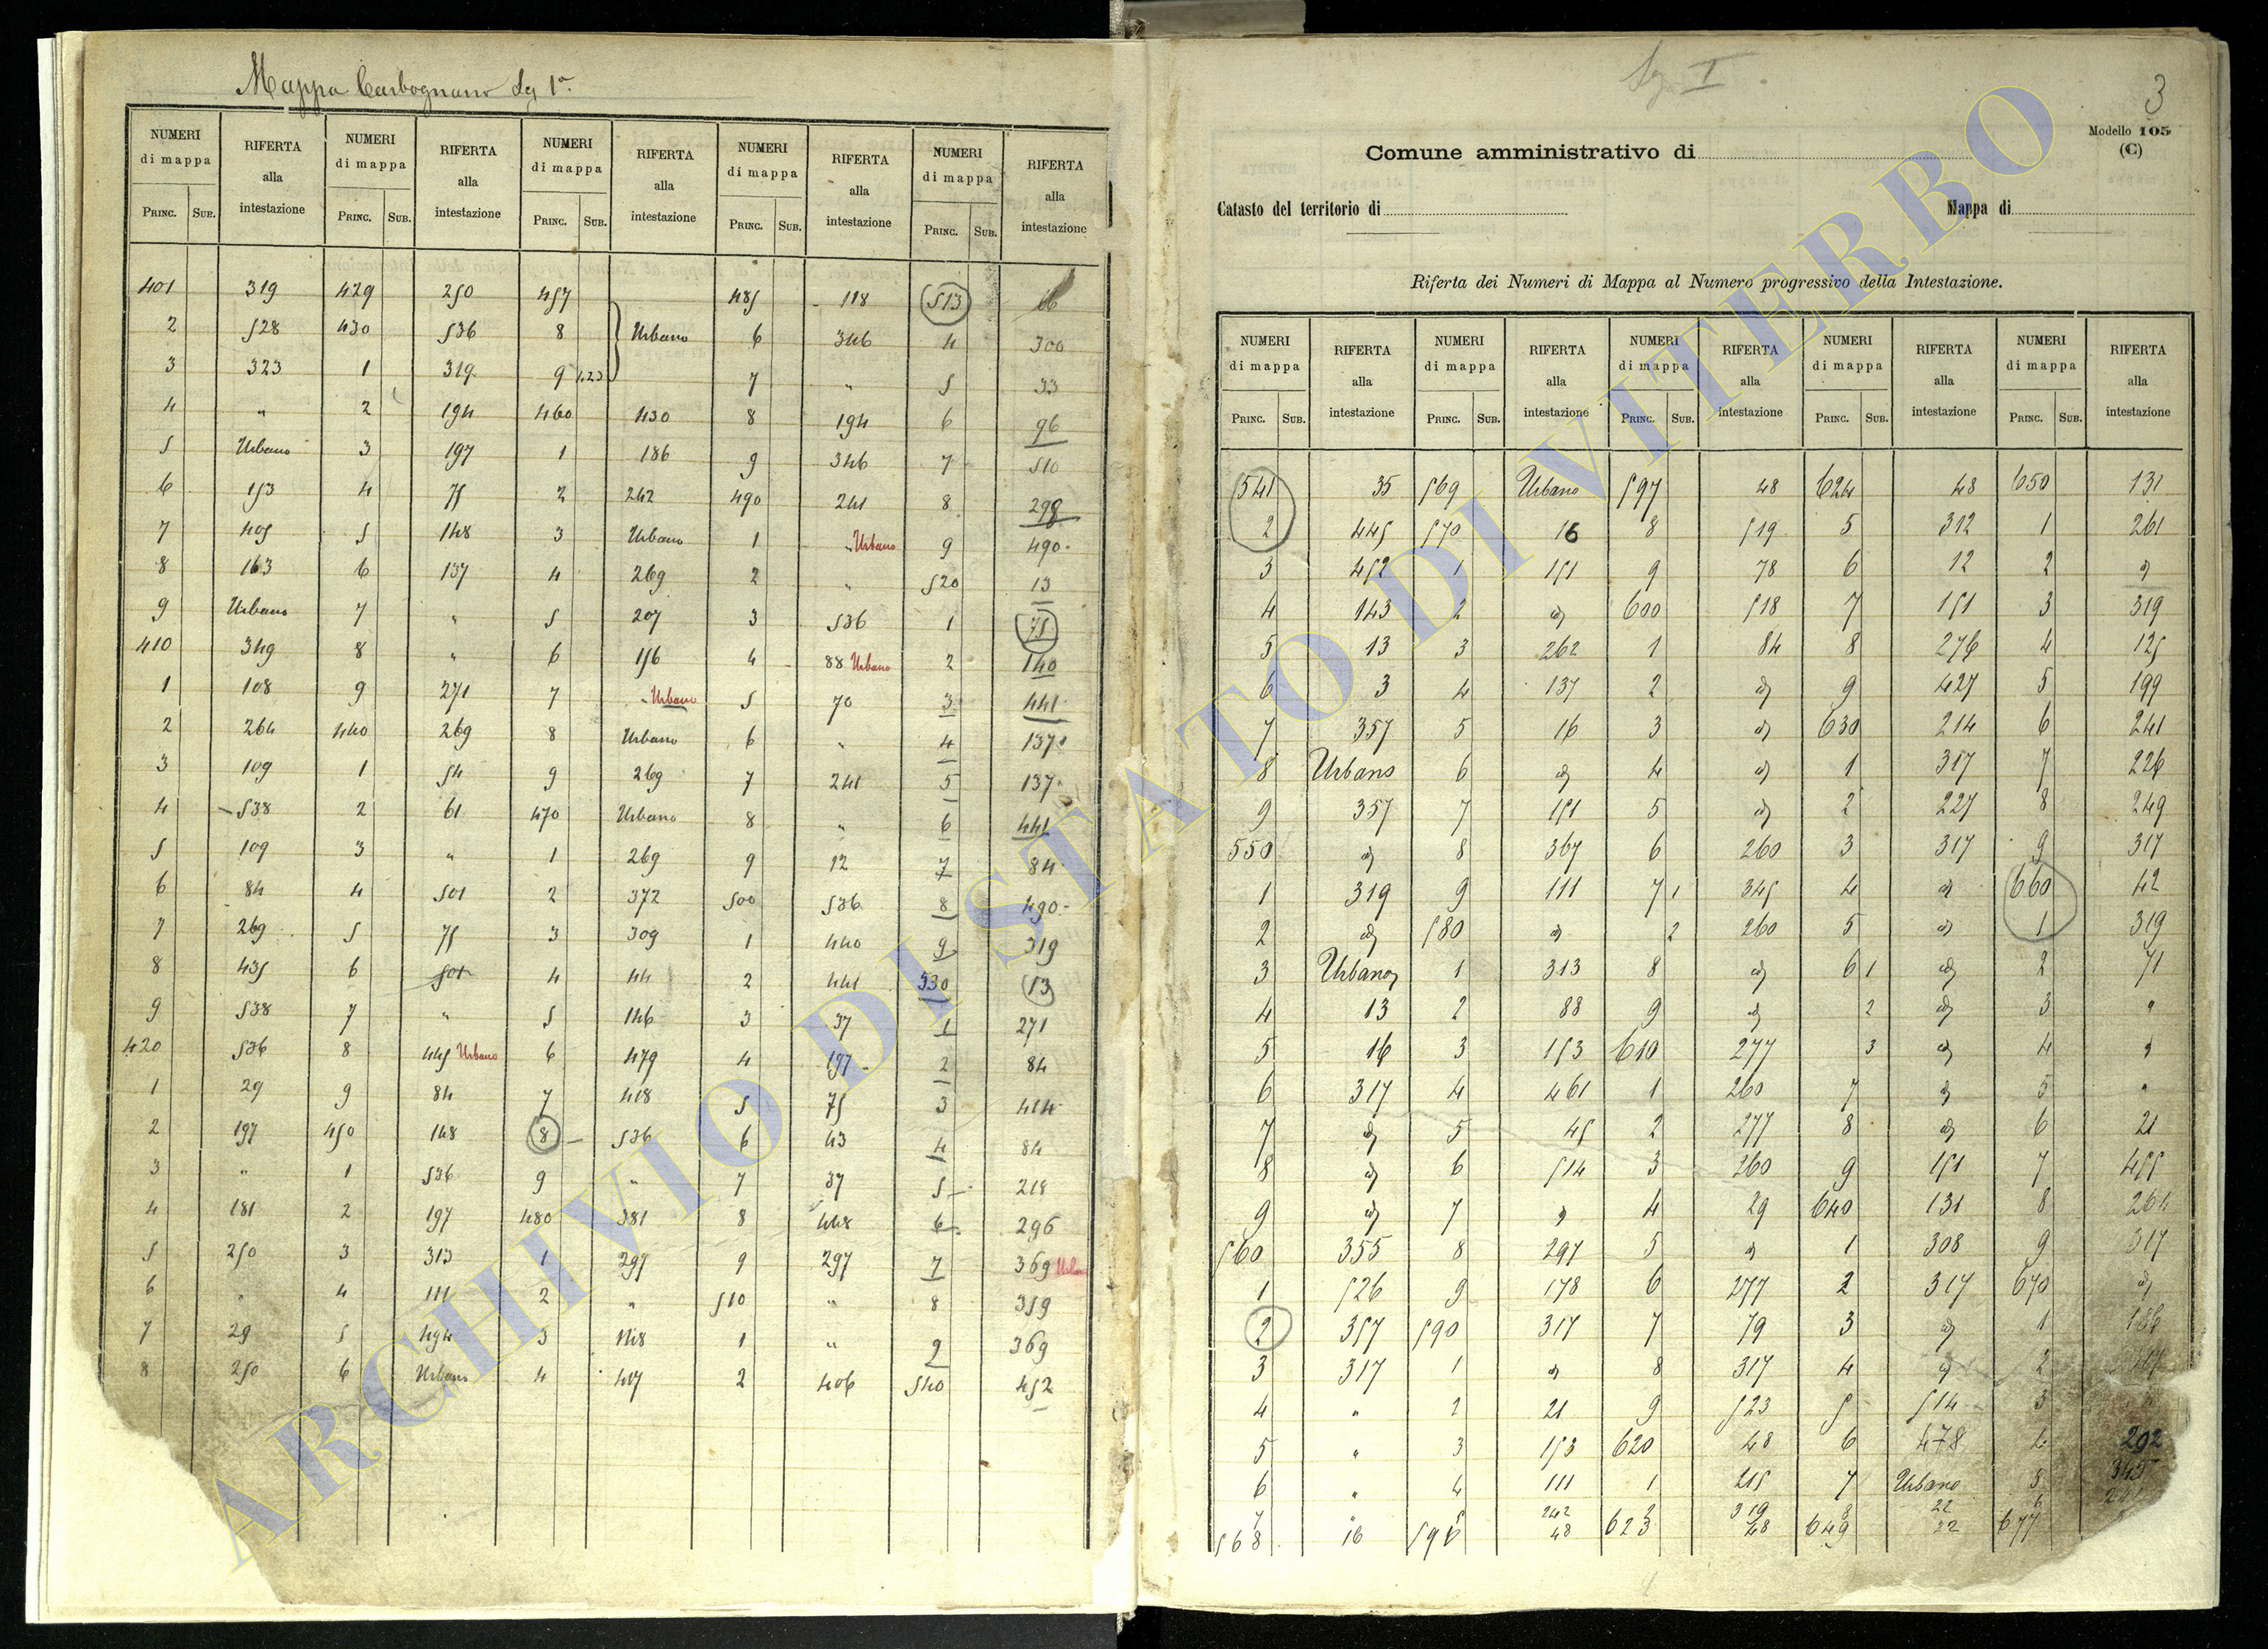 Mappa Carbognano Sez 1ª
NUMERI di mappa RIFERTA alla intestazione NUMERI di mappa RIFERTA alla intestazione NUMERI di mappa RIFERTA alla intestazione NUMERI di mappa RIFERTA alla intestazione NUMERI di mappa RIFERTA alla intestazione
PRINC. SUB. PRINC. SUB. PRINC. SUB. PRINC. SUB. PRINC. SUB.
401 319 429 250 457 485 118 513 16
2 528 430 536 8 Urbano 6 346 4 300
3 323 1 319 9 1.2.3 7 " 5 33
4 " 2 194 460 430 8 194 6 96
5 Urbano 3 197 1 186 9 346 7 510
6 153 4 75 2 242 490 241 8 298
7 405 5 148 3 Urbano 1 " Urbano 9 490
8 163 6 137 4 269 2 " 520 13
9 Urbano 7 " 5 207 3 536 1 75
410 349 8 " 6 156 4 88 Urbano 2 140
1 108 9 271 7 Urbano 5 70 3 441
2 264 440 269 8 Urbano 6 " 4 137
3 109 1 54 9 269 7 241 5 137
4 538 2 61 470 Urbano 8 " 6 441
5 109 3 " 1 269 9 12 7 84
6 84 4 501 2 372 500 536 8 490
7 269 5 75 3 309 1 440 9 319
8 435 6 501 4 44 2 441 530 13
9 538 7 " 5 146 3 37 1 271
420 536 8 445 Urbano 6 479 4 197 2 84
1 29 9 84 7 418 5 75 3 414
2 197 450 148 8 536 6 43 4 84
3 " 1 536 9 " 7 37 5 218
4 181 2 197 480 381 8 448 6 296
5 250 3 313 1 297 9 297 7 369
6 " 4 111 2 " 510 " 8 359
7 29 5 494 3 1 " 9 369
8 250 6 Urbano 4 407 2 406 540 452
Sez I
3
Modello 105
(C)
Comune amministrativo di
Catasto del territorio di Mappa di
Riferta dei Numeri di Mappa al Numero progressivo della Intestazione.
NUMERI di mappa RIFERTA alla intestazione NUMERI di mappa RIFERTA alla intestazione NUMERI di mappa RIFERTA alla intestazione NUMERI di mappa RIFERTA alla intestazione NUMERI di mappa RIFERTA alla intestazione
PRINC. SUB. PRINC. SUB. PRINC. SUB. PRINC. SUB. PRINC. SUB.
541 35 569 Urbano 597 48 624 48 650 131
2 445 570 16 8 519 5 312 1 261
3 452 1 151 9 78 6 12 2 id
4 143 2 id 600 518 7 151 3 319
5 13 3 262 1 84 8 276 4 125
6 3 4 137 2 id 9 427 5 199
7 357 5 16 3 id 630 214 6 241
8 Urbano 6 id 4 id 1 317 7 226
9 357 7 151 5 id 2 227 8 249
550 id 8 367 6 260 3 317 9 317
1 319 9 111 7 1 345 4 id 660 42
2 id 580 id 2 260 5 id 1 319
3 Urbano 1 313 8 id 6 1 id 2 71
4 13 2 88 9 id 2 id 3 "
5 16 3 153 610 277 3 id 4 "
6 317 4 461 1 260 7 id 5 "
7 id 5 45 2 277 8 id 6 21
8 id 6 514 3 260 9 151 7 455
9 id 7 id 4 29 640 131 8 264
560 355 8 297 5 id 1 308 9 317
1 526 9 178 6 277 2 317 670 id
2 357 590 317 7 79 3 id 1
3 317 1 id 8 317 4 id 2
4 " 2 21 9 523 5 514 3
5 " 3 153 620 48 6 478 4 202
6 " 4 111 1 215 7 Urbano 5 345
7 " 5 242 2 319 8 22 6
568 16 596 48 623 48 649 22 677
ARCHIVIO DI STATO DI VITERBO